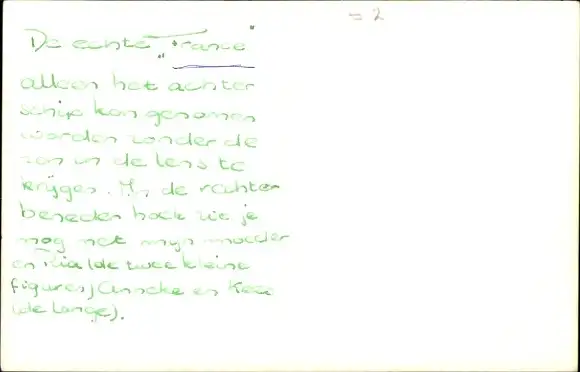 = 2
De echte "France"
alleen het achter
schip kon genomen
worden zonder de
zon in de lens te
krijgen. In de rechter
beneden hoek zie je
nog net mijn moeder
en Ria (de twee kleine
figuren) Anneke en Kees
(de lange).